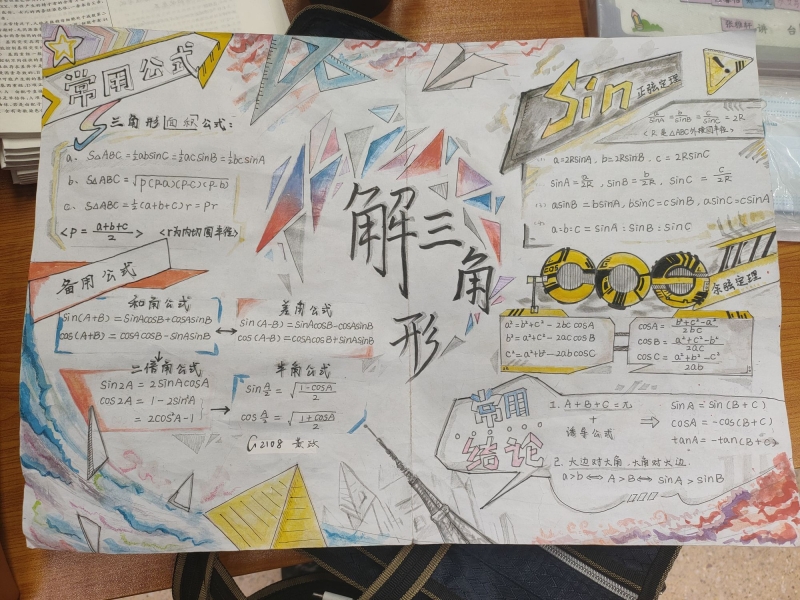 常用公式
三角形面积公式：
a、S△ABC=½absinC=½acsinB=½bcsinA
b、S△ABC=√p(p-a)(p-c)(p-b)
c、S△ABC=½(a+b+c)r=Pr
<P=(a+b+c)/2> <r为内切圆半径>
备用公式
和角公式
sin(A+B)=SinAcosB+cosAsinB
cos(A+B)=cosAcosB-sinAsinB
差角公式
sin(A-B)=SinAcosB-cosAsinB
cos(A-B)=cosAcosB+sinAsinB
二倍角公式
Sin2A=2sinAcosA
cos2A=1-2sin²A
=2cos²A-1
半角公式
sin A/2=√(1-cosA)/2
cos A/2=√(1+cosA)/2
G2108
解三角形
Sin 正弦定理
a/sinA=b/sinB=c/sinC=2R
<R是△ABC外接圆半径>
a=2RsinA, b=2RsinB, c=2RsinC
sinA=a/2R, sinB=b/2R, sinC=c/2R
asinB=bsinA, bsinC=csinB, asinC=csinA
a:b:c=sinA:sinB:sinC
cos 余弦定理
a²=b²+c²-2bccosA
b²=a²+c²-2accosB
c²=a²+b²-2abcosC
cosA=(b²+c²-a²)/2bc
cosB=(a²+c²-b²)/2ac
cosC=(a²+b²-c²)/2ab
常用结论
1. A+B+C=π
+
诱导公式
⇒
sinA=sin(B+C)
cosA=-cos(B+C)
tanA=-tan(B+C)
2. 大边对大角,大角对大边
a>b⇔A>B⇔sinA>sinB